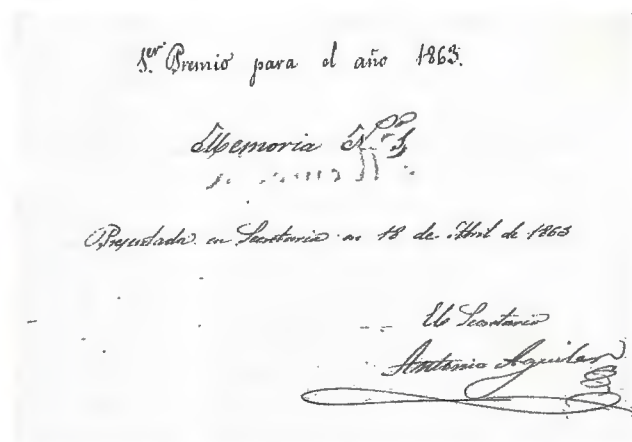 1er Premio para el año 1863.
Memoria Nº 1
Presentada en Secretaria en 18 de Abril de 1863
El Secretario
Antonio Aguilar